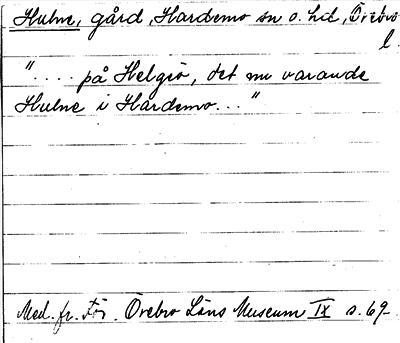 Hulne, gård, Hardemo sn o. hd, Örebro
l.
".... på Helgiö, det nu varande
Hulne i Hardemo..."
Med. fr. För. Örebro Läns Museum IX s. 69